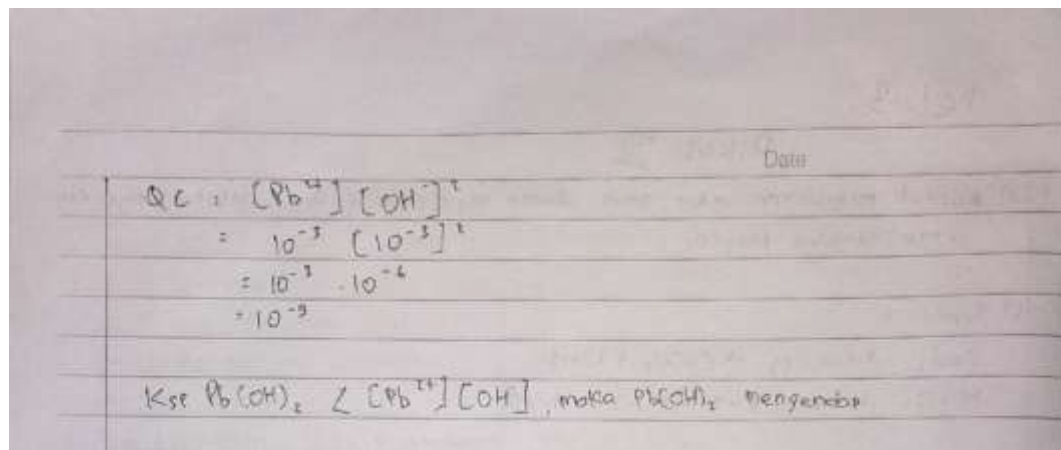 Date
Qc = [Pb²⁺] [OH⁻]²
= 10⁻³ [10⁻³]²
= 10⁻³ . 10⁻⁶
= 10⁻⁹
Ksp Pb(OH)₂ < [Pb²⁺] [OH], maka Pb(OH)₂ mengendap